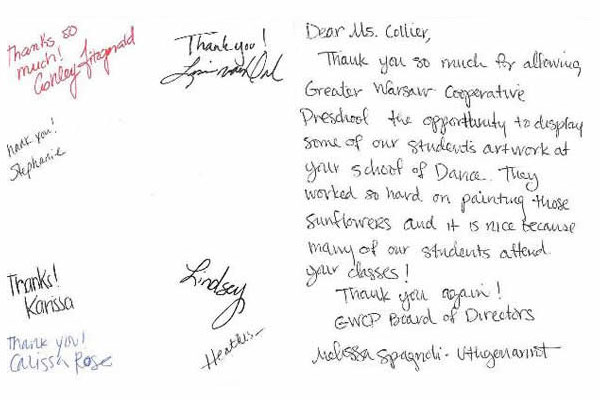 Thanks so
much!
Ashley Fitzgerald
Thank you!
hank you!
Stephanie
Thanks!
Karissa
Lindsey
Thank you!
Calissa Rose
Heather
Dear Ms. Collier,
Thank you so much for allowing
Greater Warsaw Cooperative
Preschool the opportunity to display
some of our students artwork at
your school of Dance. They
worked so hard on painting those
sunflowers and it is nice because
many of our students attend
your classes!
Thank you again!
GWCP Board of Directors
Melissa Spagnoli-